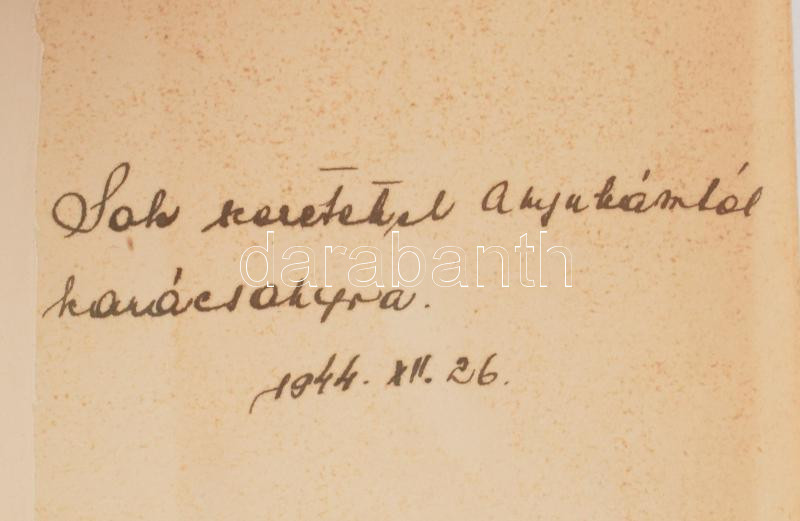 Sok szeretettel Anyukámtól
darabanth
karácsonyra.
1944. XII. 26.